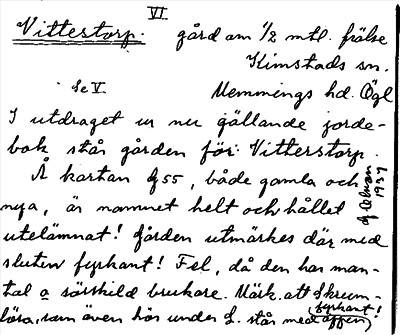 VI
Vittestorp. gård om 1/2 mtl. frälse
Kimstads sn.
Se V. Memmings hd. Ögl
I utdraget ur nu gällande jorde-
bok står gården för: Vitterstorp.
Å kartan f 55, både gamla och
nya, är namnet helt och hållet
utelämnat! Gården utmärkes där med
sluten fyrkant! Fel, då den har man-
tal o särskild brukare. Märk. att Skrum-
låra, som även hör under L. står med öppen
fyrkant!
1927